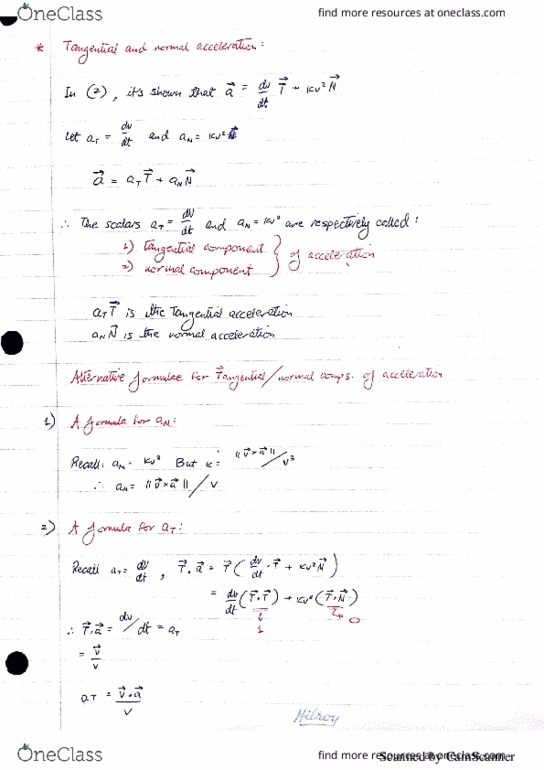 OneClass
find more resources at oneclass.com
* Tangential and normal acceleration:
In (2), it's shown that a⃗ = dv/dt T⃗ + κv² N⃗
Let a_T = dv/dt and a_N = κv²
a⃗ = a_T T⃗ + a_N N⃗
∴ The scalars a_T = dv/dt and a_N = κv² are respectively called:
1) tangential component
2) normal component } of acceleration
a_T T⃗ is the Tangential acceleration
a_N N⃗ is the normal acceleration
Alternative formulae for Tangential/normal comps. of acceleration
1) A formula for a_N:
Recall: a_N = κv² But κ = ||v⃗ × a⃗||/v³
∴ a_N = ||v⃗ × a⃗||/v
2) A formula for a_T:
Recall a_T = dv/dt, T⃗ . a⃗ = T⃗ (dv/dt . T⃗ + κv² N⃗)
= dv/dt (T⃗ . T⃗) + κv² (T⃗ . N⃗)
1 0
∴ T⃗ . a⃗ = dv/dt = a_T
= v⃗/v
a_T = v⃗ . a⃗/v
Milroy
OneClass
find more resources at oneclass.com
Scanned by CamScanner